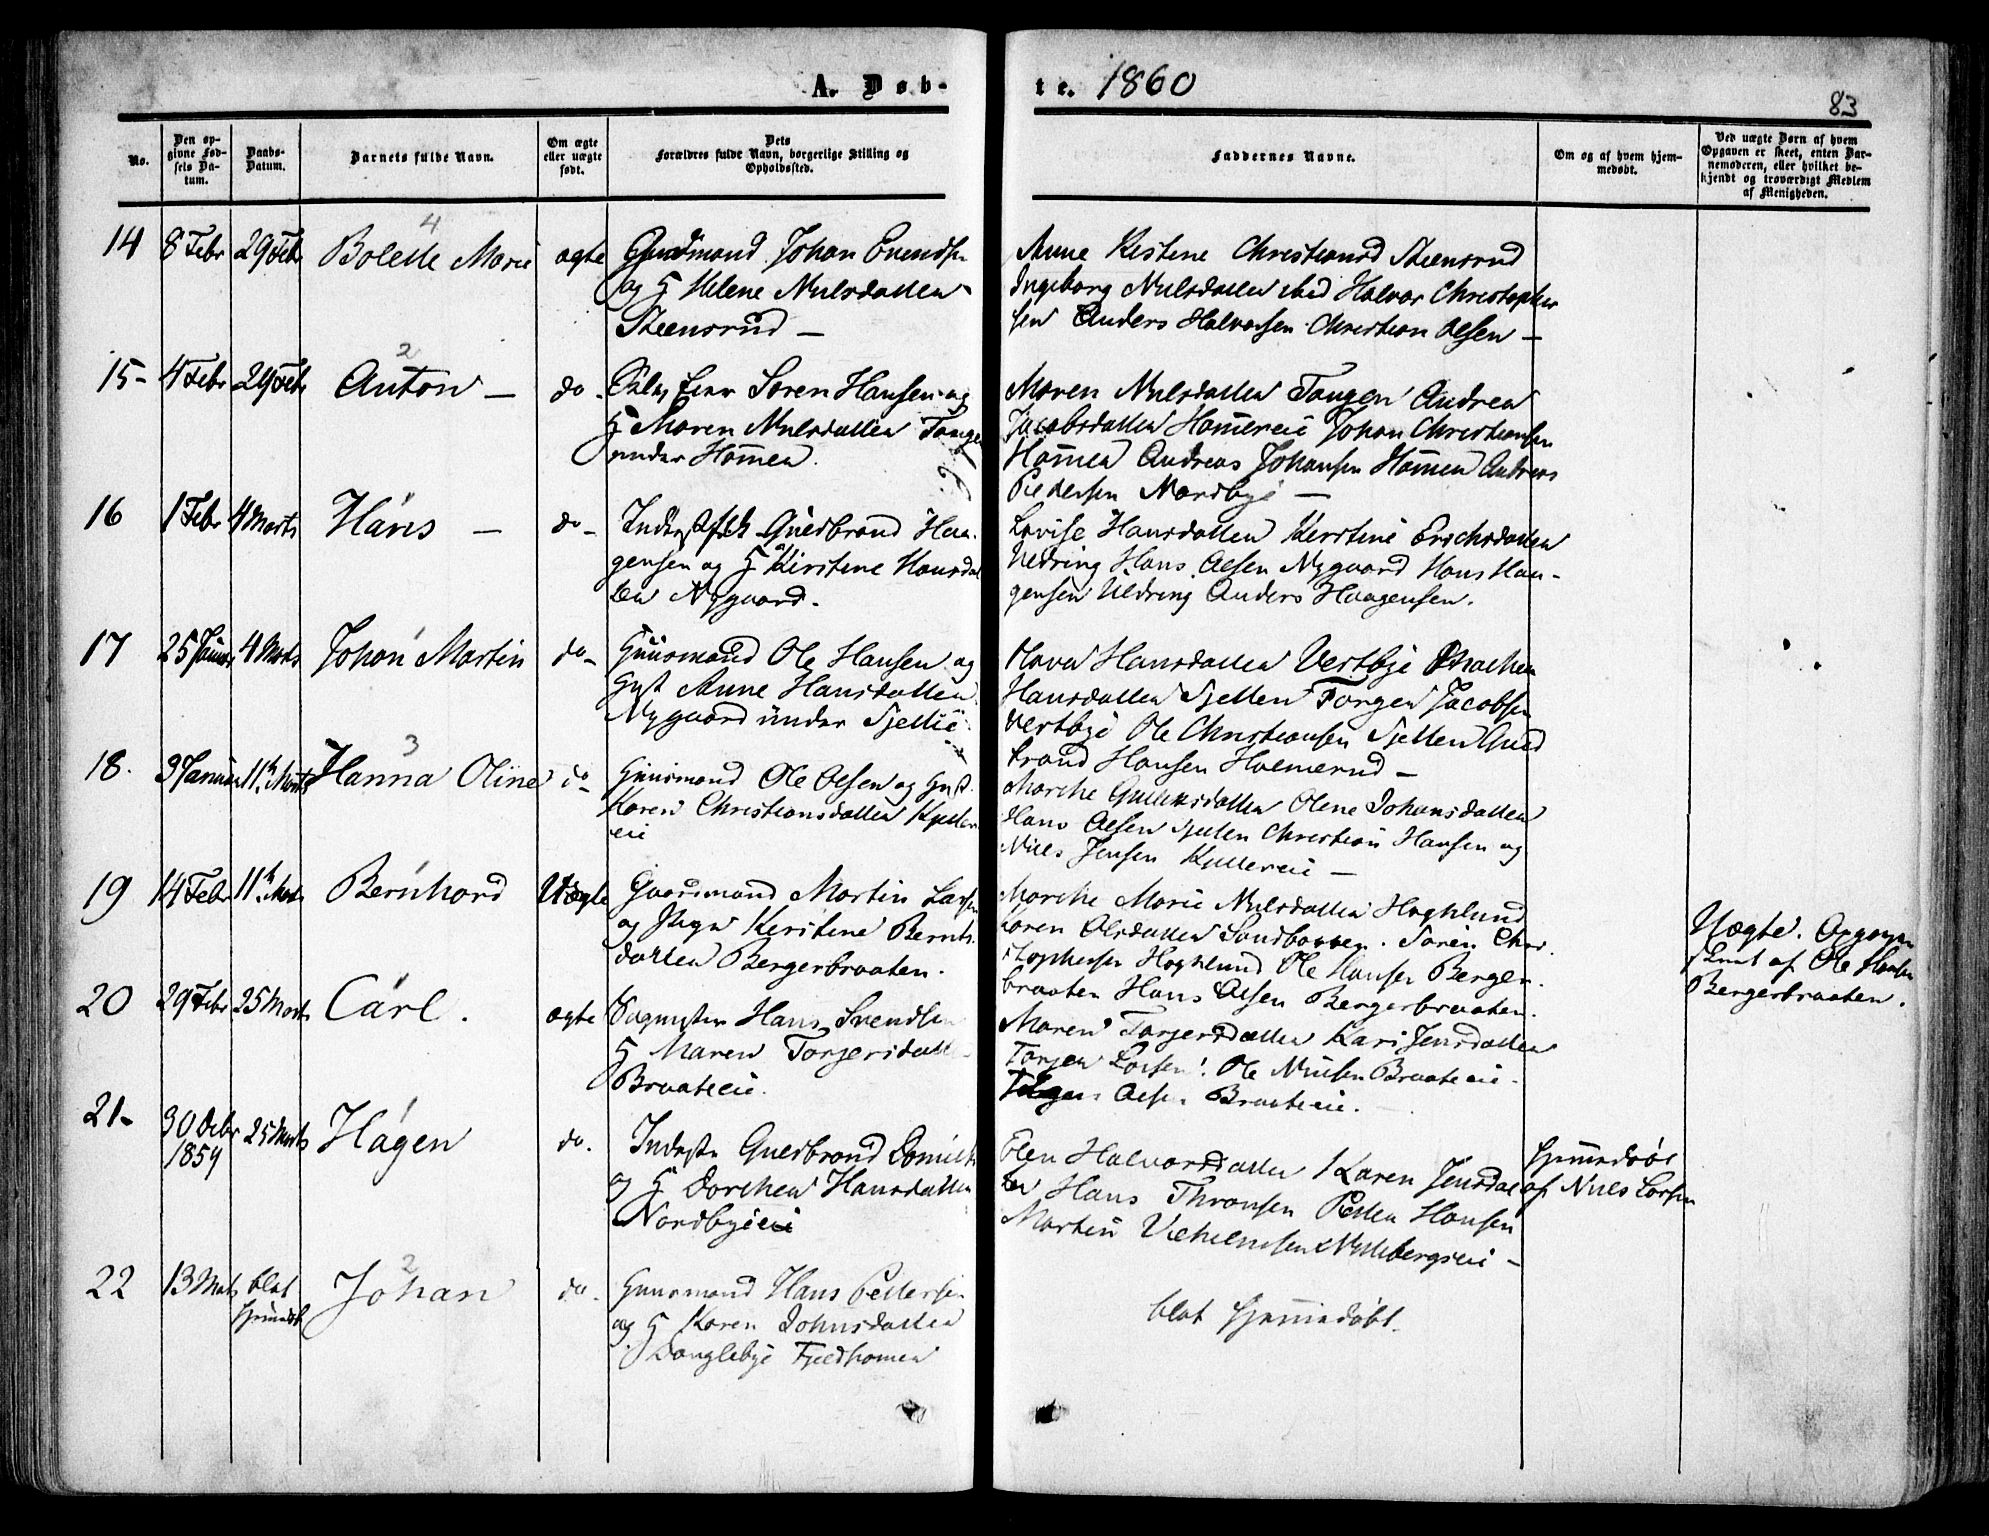 A. Døb-
te. 1860
83
No.
Den op-
givne Fød-
sels Da-
tum.
Daabs-
Datum.
Barnets fulde Navn.
Om ægte
eller uægte
født.
Dets
Forældres fulde Navn, borgerlige Stilling og
Opholdssted.
Faddernes Navne.
Om og af hvem hjem-
medøbt.
Ved uægte Børn af hvem
Opgaven er skeet, enten Bar-
nemoderen, eller hvilket be-
kjendt og troværdigt Medlem
af Menigheden.
4
14 8 Febr 29 Febr Bolette Marie ægte Johan Evendsen
og H Helene Nielsdatter
Steensrud —
Anne Kistene Christiansd Steensrud
Ingeborg Nielsdatter Halvor Christopher
sen Anders Halvorsen Christian Olsen —
2
15- 4 Febr 29 Febr Anton — do. Søren Hansen og
H Maren Nielsdatter Tangen
under Homen.
Maren Nielsdatter Tangen Andrea
Jacobsdatter Homereie Johan Christiansen
Homen Andreas Johansen Homen Andreas
Pedersen Nordbye —
1
16 1 Febr 4 Marts Hans — do- Inderst Guldbrand Haa-
gensen og H Kirstine Hansdat
ter Nygaard.
Lovise Hansdatter Kerstine Erichsdatter
Uldring Hans Olsen Nygaard Hans Haa-
gensen Uldring Anders Haagensen.
1
17 25 Januar 4 Marts Johan Martin do- Huusmand Ole Hansen og
Hust Anne Hansdatter
Nygaard under Sjellie
Hansdatter Vestbye
Hansdatter Sjellen Torger Jacobsen
Vestbye Ole Christiansen Sjellen Guld
brand Hansen Holmerud —
3
18. 3 Januar 11te Marts Hanna Oline do- Huusmand Ole Olsen og Hust.
Karen Christiansdatter
eie
Marthe Gulliksdatter Olene Johansdatter
Hans Olsen Christian Hansen og
Niels Jensen Kullereie —
1
19 14 Febr 11te Marts Bernhard Uægte Gaardmand Martin Larsen
og Pigen Kerstine Bernts
datter Bergerbraaten.
Marthe Marie Nielsdatter Høghlund
Karen Olsdatter Sandbakken. Søren Chri
stophersen Høghlund Ole Hansen Berger-
braaten Hans Olsen Bergerbraaten.
Uægte. Opgaven
skeet af Ole Hansen
Bergerbraaten.
1
20 29 Febr 25 Marts Carl. ægte Hans Svendsen
H Maren Torgersdatter
Braateeie.
Maren Torgersdatter Kari Jensdatter
Torger Larsen. Ole Nilsen Braateeie.
Olsen Braateeie.
1
21- 30 Debr
1859
25 Marts Hagen do. Inderste Guldbrand
og H Dorthea Hansdatter
Nordbyeeie
Elen Halvorsdatter Karen Jensdat
ter Hans Thronsen Petter Hansen
Martin Vilhelmsen Nylebergseie —
Hjemmedøbt
af Niels Larsen
2
22 13 Marts blot
hjemmedøbt
Johan do. Huusmand Hans Pettersen
og H Karen Johnsdatter
Danglebye Fjeldhomen
blot hjemmedøbt.